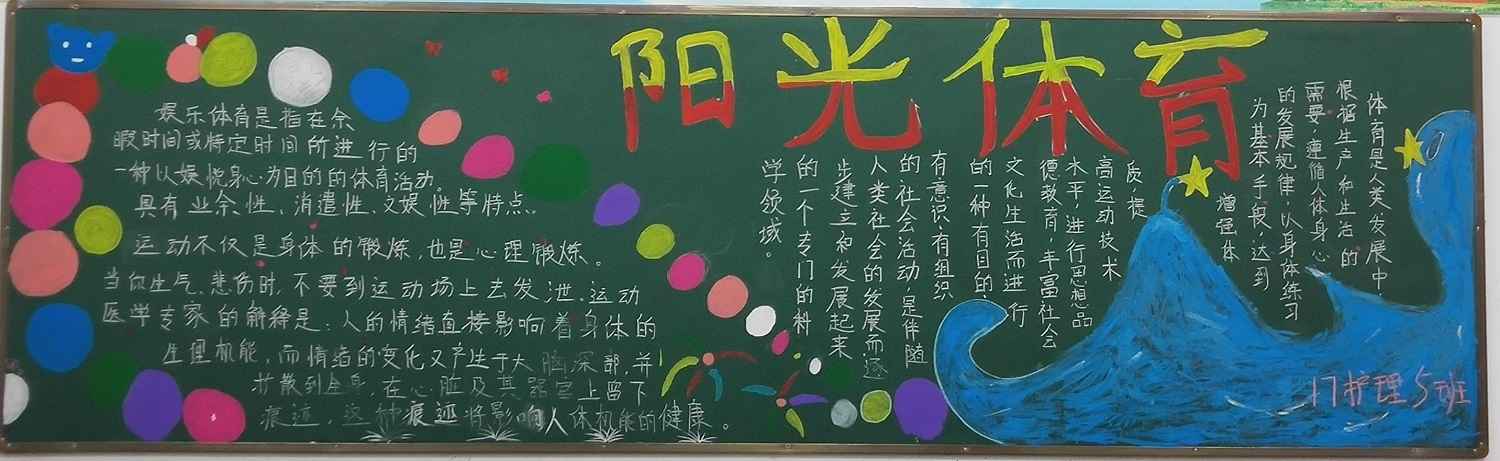 阳光体育
娱乐体育是指在余
暇时间或特定时间所进行的
一种以娱悦身心为目的的体育活动。
具有业余性、消遣性、文娱性等特点。
运动不仅是身体的锻炼,也是心理锻炼。
当你生气、悲伤时,不要到运动场上去发泄。运动
医学专家的解释是:人的情绪直接影响着身体的
生理机能,而情绪的变化又产生于大脑深部,并
扩散到全身,在心脏及其器官上留下
痕迹,这种痕迹将影响人体机能的健康。
体育是人类发展中
根据生产和生活的
需要,遵循人体身心
的发展规律,以身体练习
为基本手段,达到
增强体
质,提
高运动技术
水平,进行思想品
德教育,丰富社会
文化生活而进行
的一种有目的、
有意识、有组织
的社会活动,是伴随
人类社会的发展而逐
步建立和发展起来
的一个专门的科
学领域。
17护理5班